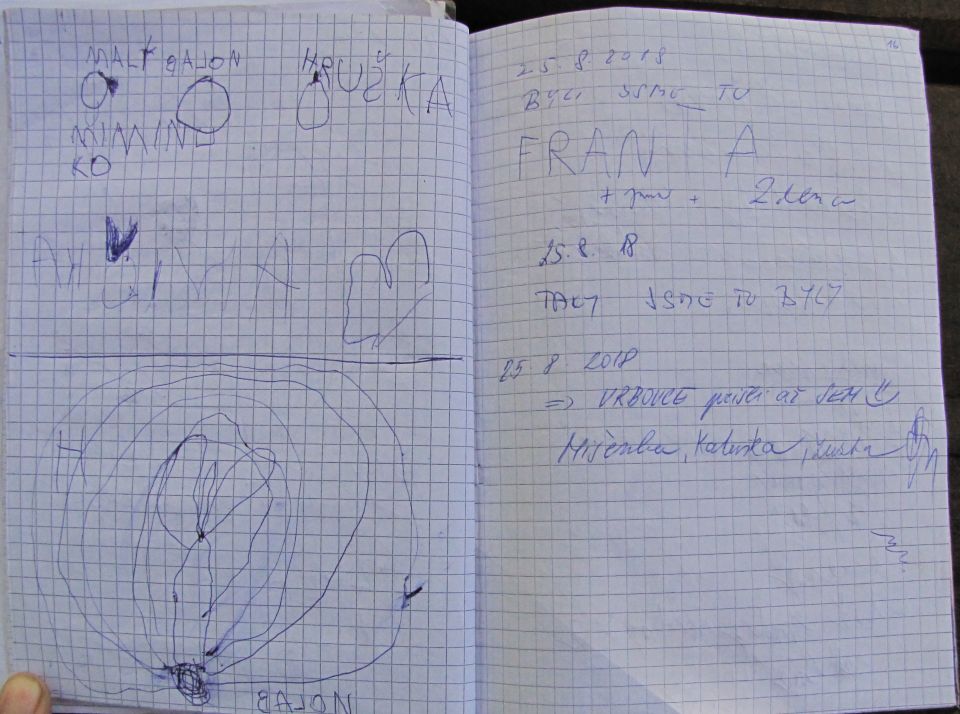 MALÝ BALON HRUŠKA
MIMIN
KO
H
BALON
16
25. 8. 2018
BYLI JSME TU
FRANTA
+ + Zdena
25. 8. 18
TAKY JSME TU BYLY
25. 8. 2018
=> VRBOVCE až SEM
Katuška